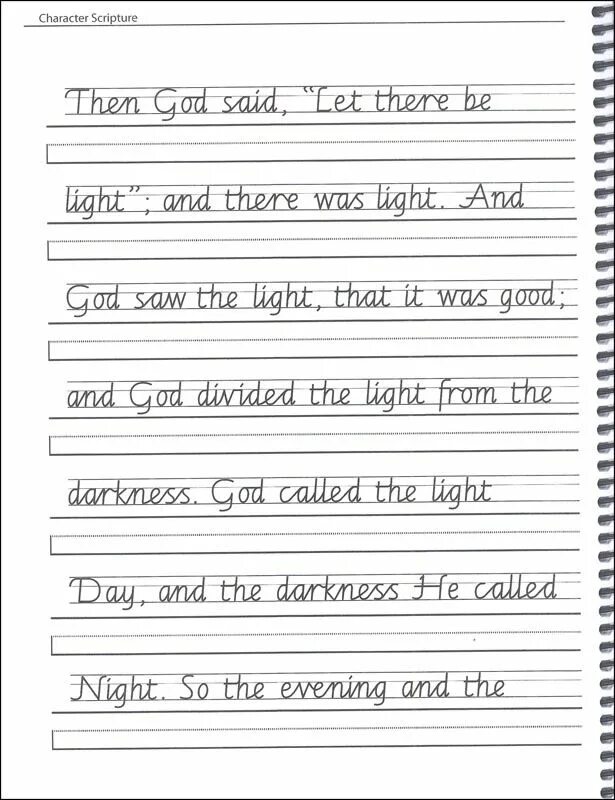 Character Scripture
Then God said, "Let there be
light"; and there was light. And
God saw the light, that it was good;
and God divided the light from the
darkness. God called the light
Day, and the darkness He called
Night. So the evening and the